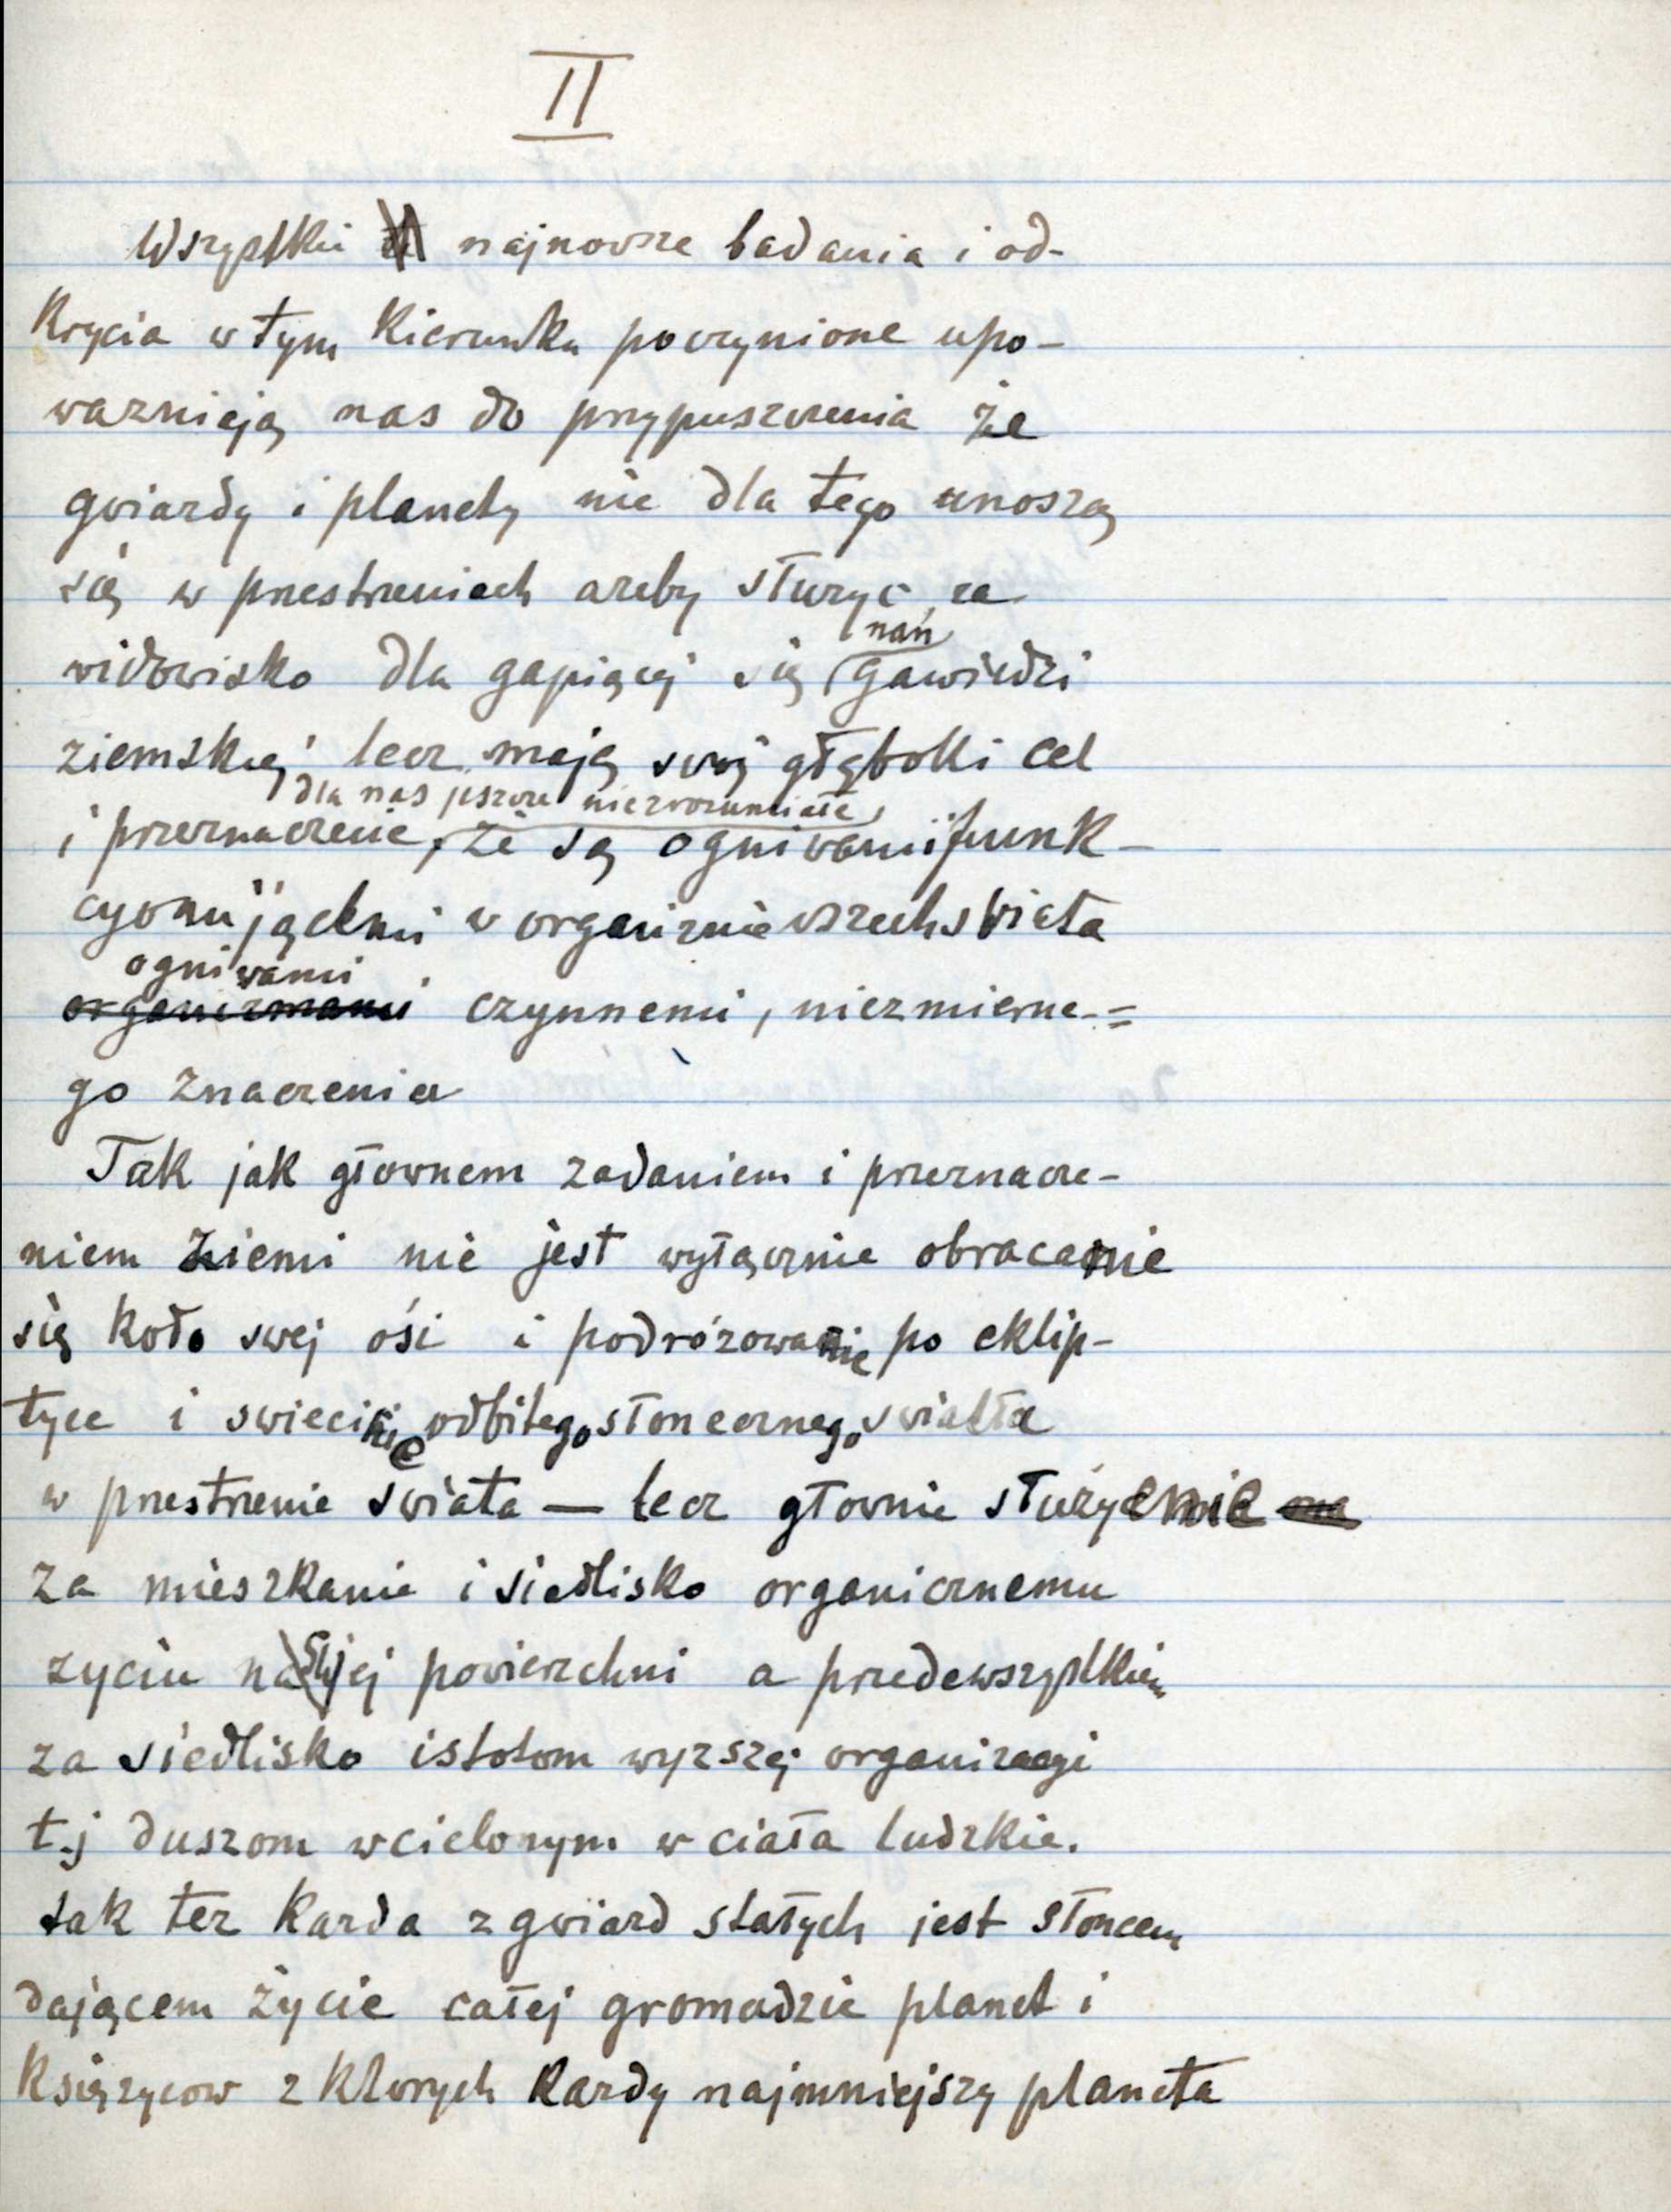 II
Wszystkie najnowsze badania i od-
krycia w tym kierunku poczynione upo-
ważnieją nas do przypuszczenia że
gwiazdy i planety nie dla tego unoszą
się w przestrzeniach azeby słuzyc za
nań
widowisko dla gapiącej się gawiedzi
ziemskiej lecz mają swój głęboki cel
dla nas jeszcze niezrozumiałe
i przeznaczenie, że są ogniwami funk-
cyonującemi w organizmie wszechswiata
ogniwami
organizmami czynnemi, niezmierne-=
go znaczenia
Tak jak głownem zadaniem i przeznacze-
niem ziemi nie jest wyłącznie obracanie
się koło swej ośi i podrózowanie po eklip-
tyce i swiecenie odbitego słonecznego swiatła
w przestrzenie swiata — lecz głownie służyenie
za mieszkanie i siedlisko organicznemu
zyciu na swej powierzchni a przedewszystkiem
za siedlisko istotom wyzszej organizacyi
t.j duszom wcielonym w ciała ludzkie.
tak tez kazda z gwiazd stałych jest słoncem
dającem życie całej gromadzie planet i
księzycow z ktorych kazdy najmniejszy planeta